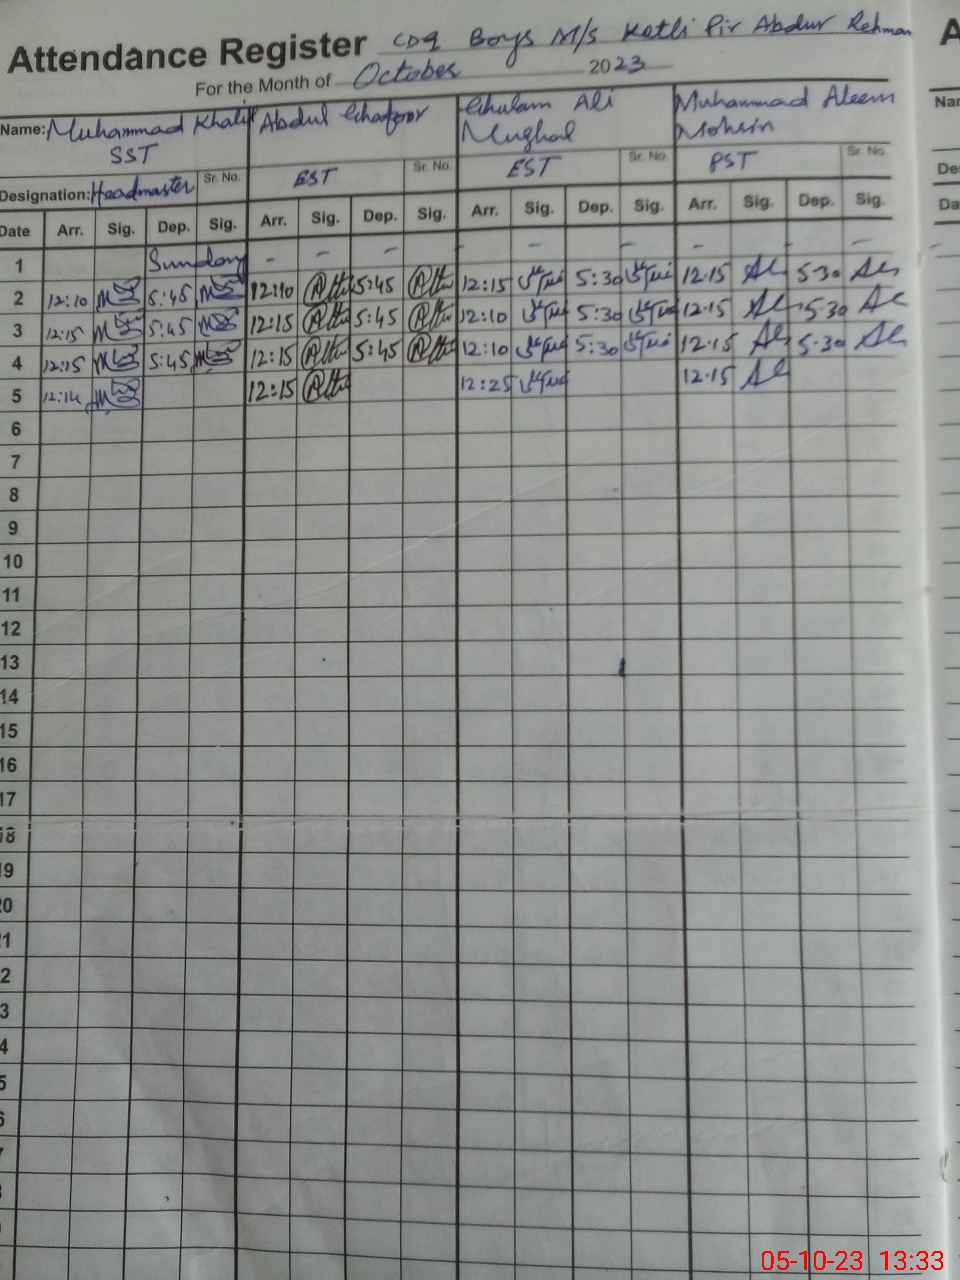 Attendance Register CDG Boys M/S Kotli Pir Abdur Rehman
For the Month of October 2023
Name: Muhammad Khalif Abdul Ghafoor Ghulam Ali Muhammad Aleem
SST Mughal Mohsin
Designation: Headmaster Sr. No. EST Sr. No. EST Sr. No. PST Sr. No.
Date Arr. Sig. Dep. Sig. Arr. Sig. Dep. Sig. Arr. Sig. Dep. Sig. Arr. Sig. Dep. Sig.
1 Sunday - - - - - - - - -
2 12:10 5:45 12:10 5:45 12:15 5:30 12.15 5.30
3 12:15 5:45 12:15 5:45 12:10 5:30 12.15 5.30
4 12:15 5:45 12:15 5:45 12:10 5:30 12.15 5.30
5 12:14 12:15 12:25 12.15
6
7
8
9
10
11
12
13
14
15
16
17
18
19
20
21
2
3
4
5
6
05-10-23 13:33